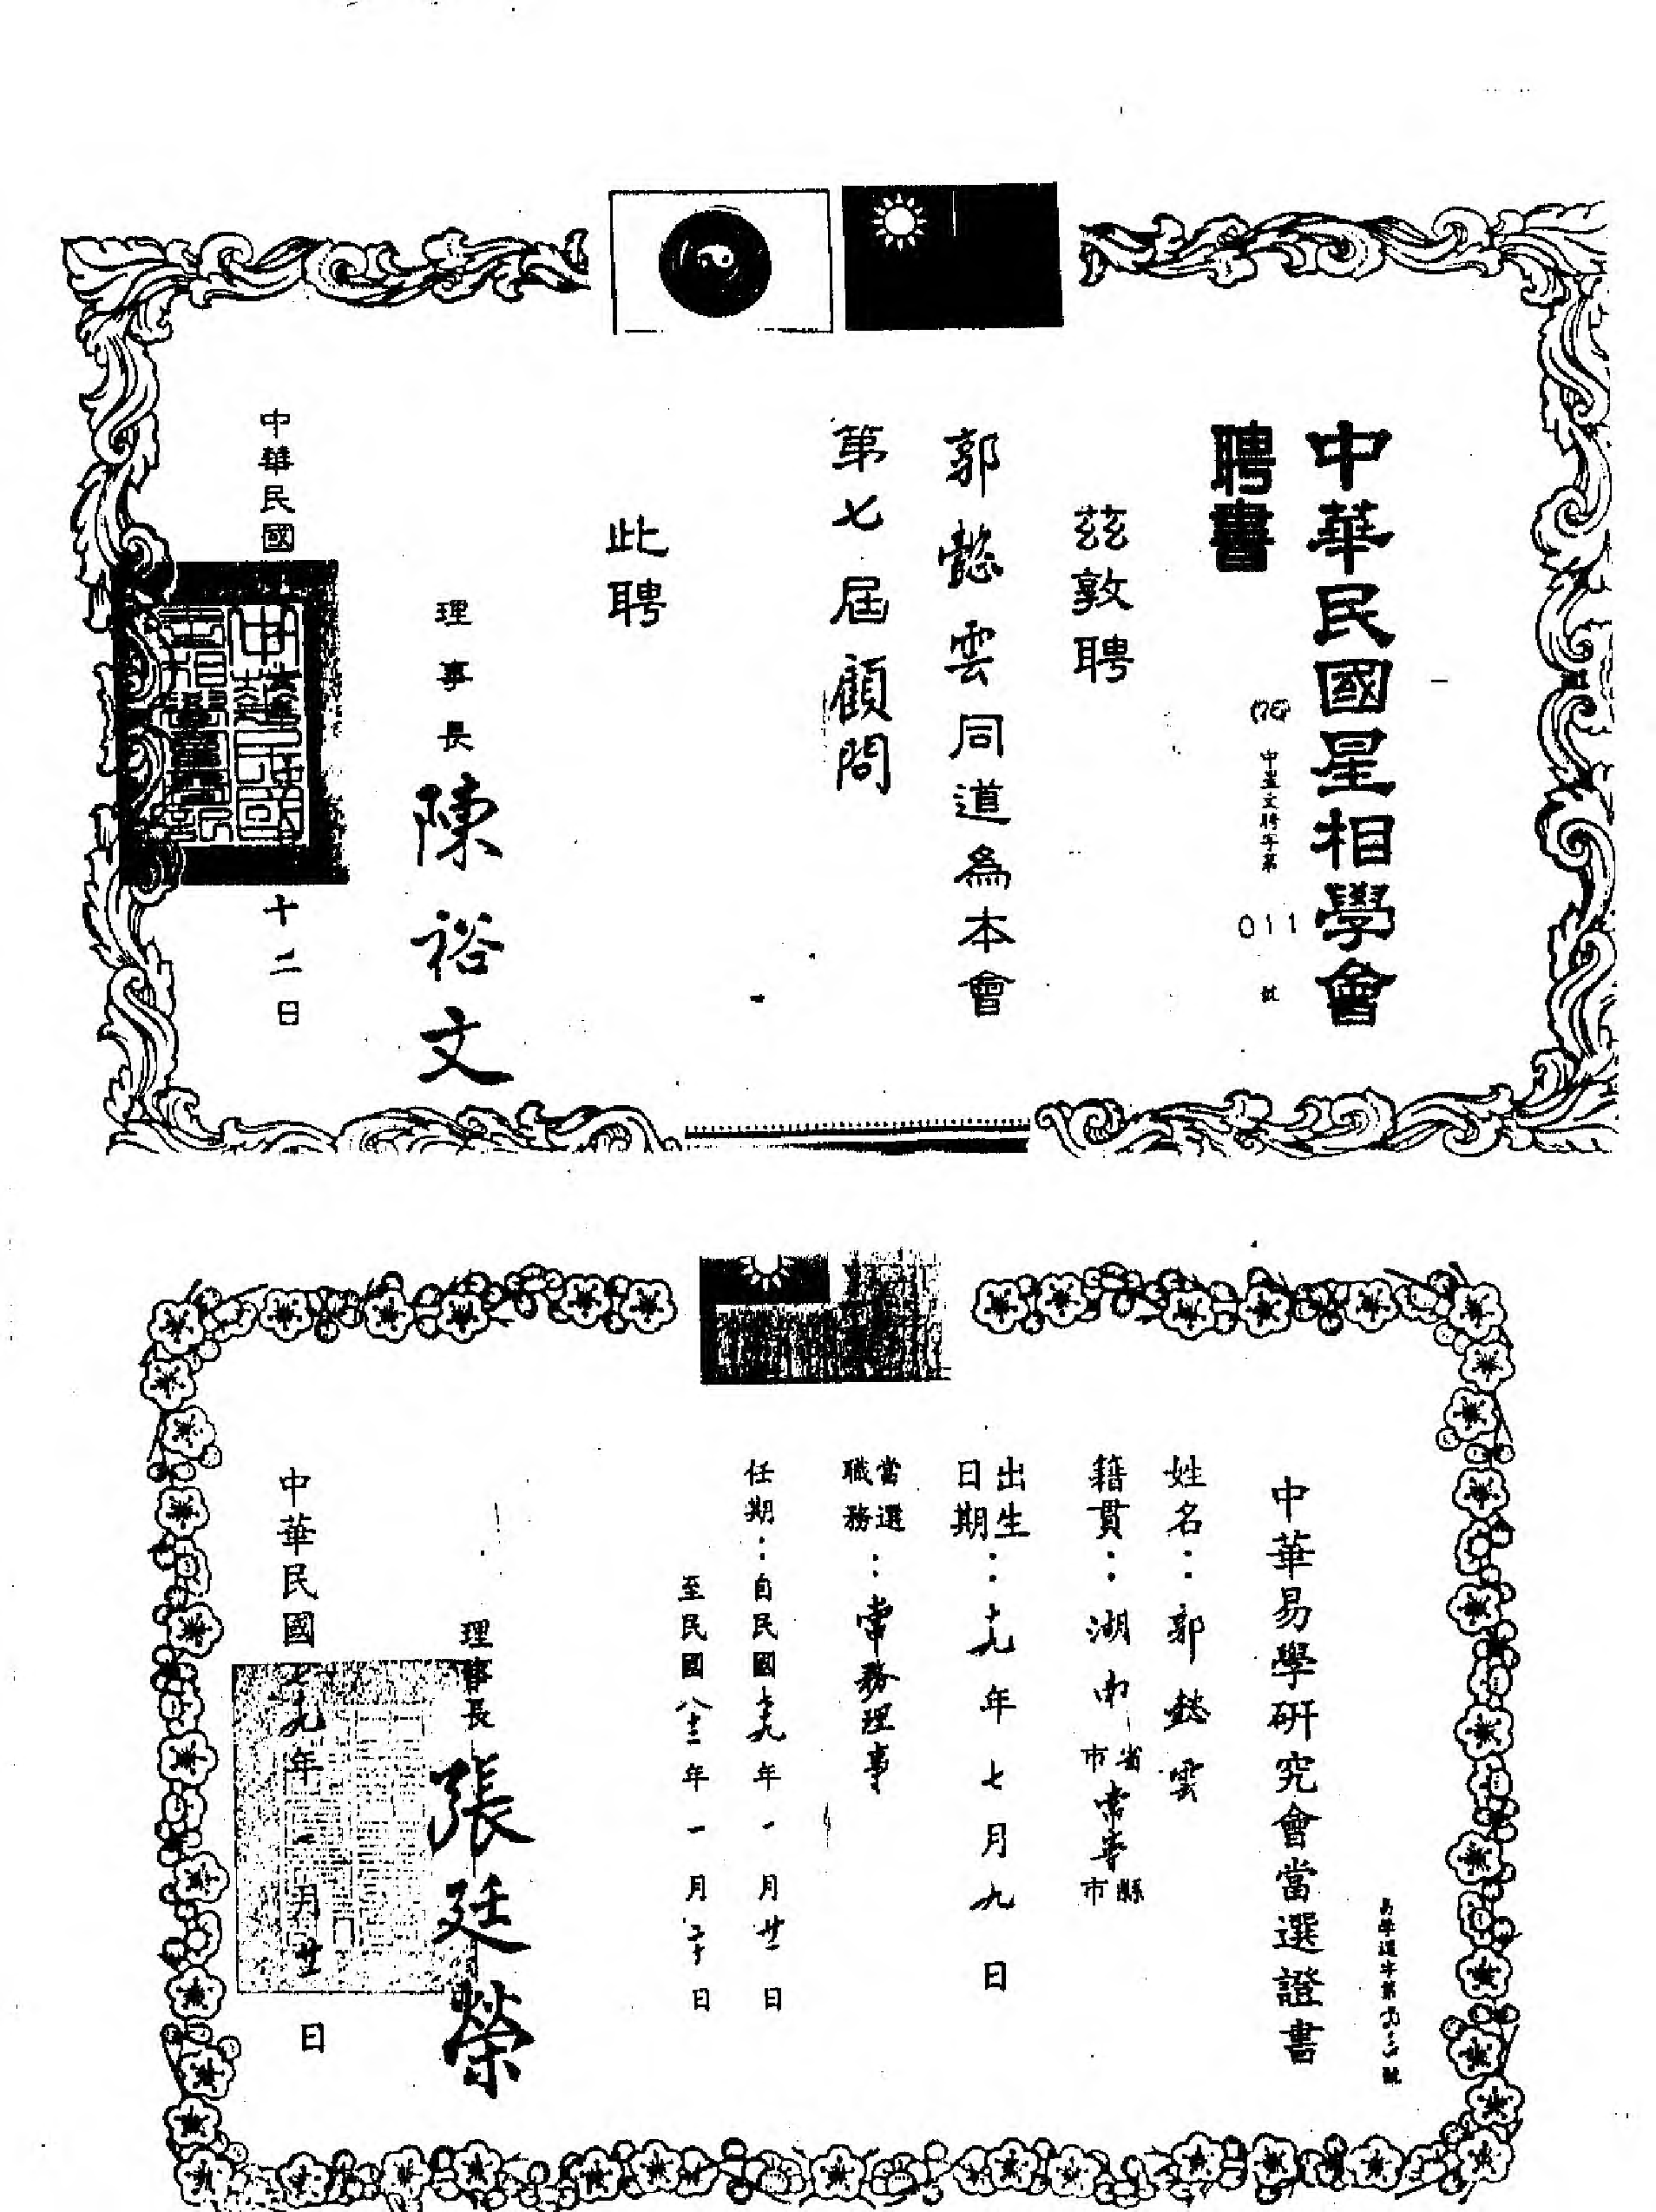 中華民國星相學會
聘書
(76)中星文聘字第011號
茲敦聘
郭懿雲同道為本會
第七屆顧問
此聘
理事長 陳裕文
中華民國
十二日
中華易學研究會當選證書
姓名：郭懿雲
籍貫：湖南省市常寧縣市
出生日期：十九年七月九日
當選職務：常務理事
任期：自民國七十九年一月廿一日
至民國八十二年一月二十日
理事長 張廷榮
中華民國七十九年一月廿一日